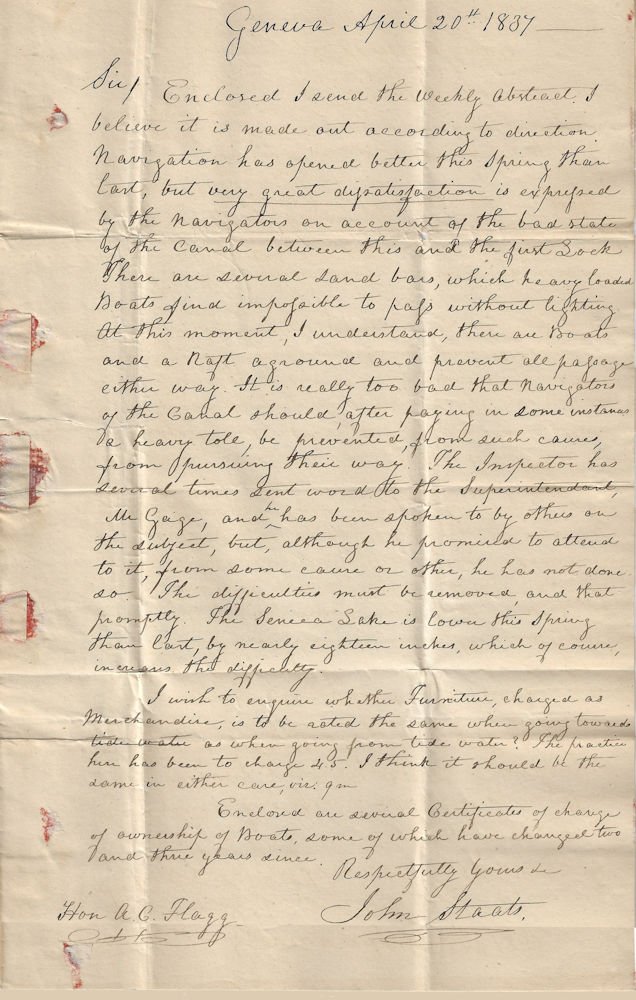 Geneva April 20th 1837
Sir/ Enclosed I send the Weekly Abstract. I
believe it is made out according to direction.
Navigation has opened better this Spring than
last, but very great dissatisfaction is expressed
by the Navigators on account of the bad state
of the Canal between this and the first Lock
There are several Sand bars, which heavy loaded
Boats find impossible to pass without lighting
At this moment, I understand, there are Boats
and a Raft aground and prevent all passage
either way. It is really too bad that Navigators
of the Canal should, after paying in some instances
a heavy tole, be prevented, from such causes,
from pursuing their way. The Inspector has
several times sent word to the Superintendant,
Mr Gaige, and he has been spoken to by others on
the subject, but, although he promised to attend
to it, from some cause or other, he has not done
so. The difficulties must be removed, and that
promptly. The Seneca Lake is lower this Spring
than last, by nearly eighteen inches, which of course,
increases the difficulty.
I wish to enquire whether Furniture, charged as
Merchandise, is to be rated the same when going towards
tide water as when going from tide water? The practice
here has been to charge 4.5. I think it should be the
same in either case, viz: 9m
Enclosed are several Certificates of change
of ownership of Boats, some of which have changed two
and three years since.
Respectfully Yours &
Hon A. C. Flagg John Staats.